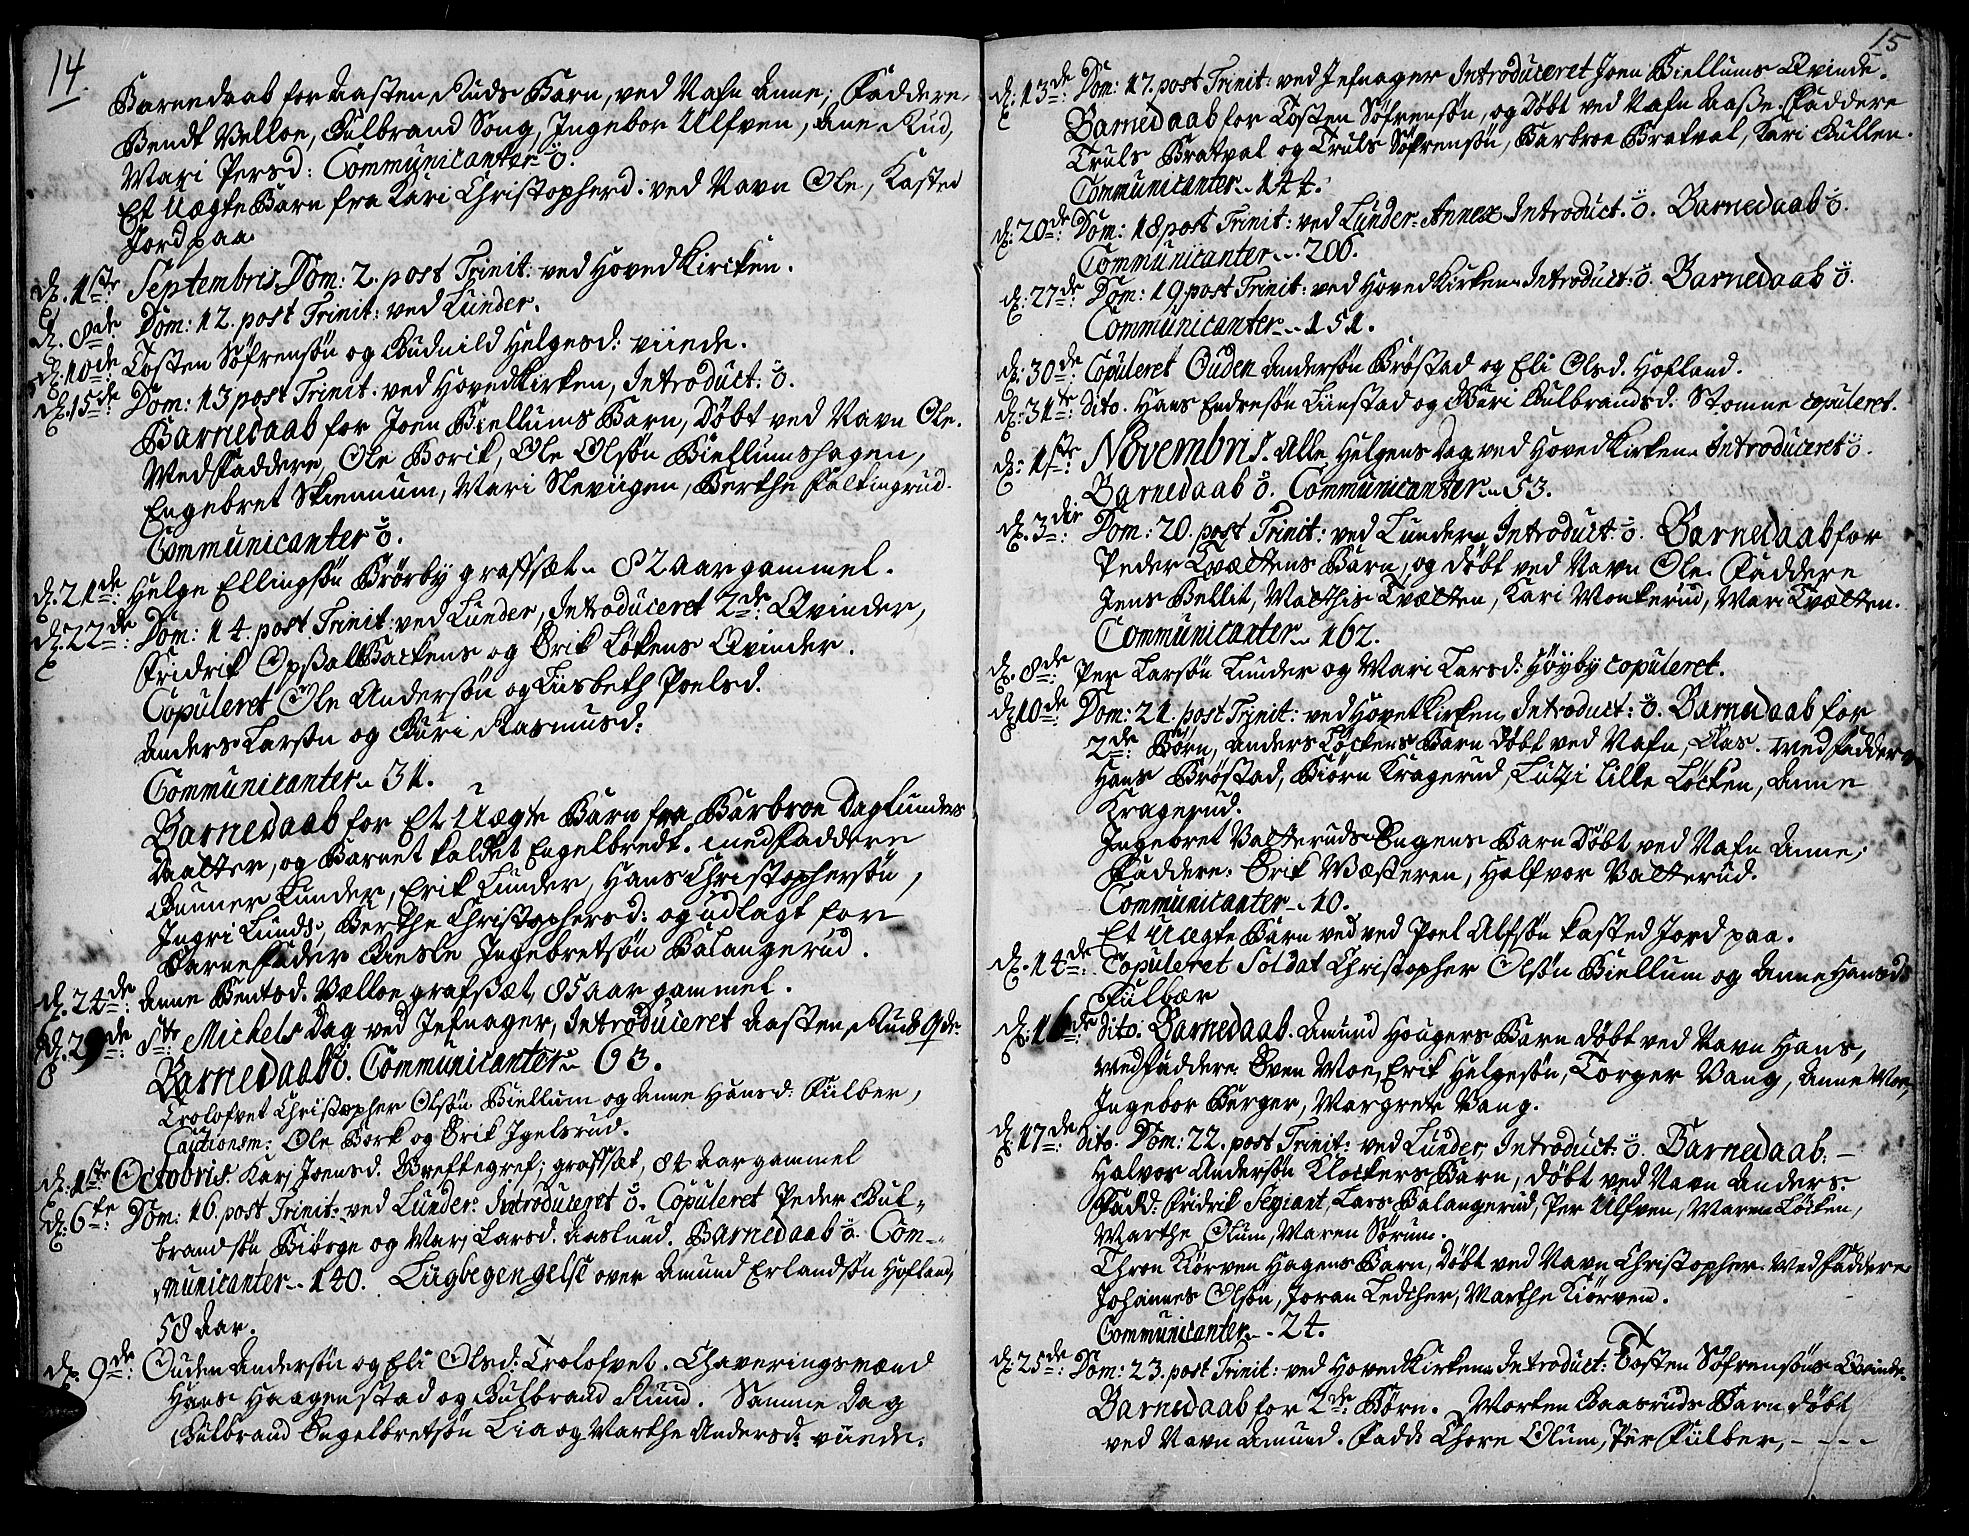 14.
Barnedaab for Aasten Ruds Barn, ved Nafn Anne; Faddere,
Bendt Velloe, Gulbrand Song, Ingebor Ulfven, Ane Rud,
Mari Persd: Communicanter ö.
Et Uægte Barn fra Kari Christopherd: ved Navn Ole, Kasted
Jord paa
d. 1ste Septembris, Dom: 2. post Trinit: ved Hovedkircken.
d. 8de Dom: 12. post Trinit: ved Lunder.
d. 10de Tosten Söfrensön og Gudnild Helgesd: viiede.
d. 15de: Dom: 13 post Trinit: ved Hovedkirken, Introduct: ö.
Barnedaab for Joen Biellums Barn, Döbt ved Navn Ole.
Medfaddere, Ole Borik, Ole Olsön Biellumshagen,
Engebret Skiennum, Mari Neviigen, Berthe Faltingrud.
Communicanter ö.
d. 21de: Helge Ellingsön Brörby grafsat 82 aar gammel.
d. 22de: Dom: 14. post Trinit: ved Lunder, Introduceret 2de: Qvinder,
Fridrik Opsal Backens og Erik Lökens Qvinder.
Copuleret Ole Andersön og Liisbeth Poelsd.
Anders Larsön og Guri Rasmusd:
Communicanter 31.
Barnedaab for Et Uægte Barn fra Barbroe Daglunders
Daatter, og Barnet kaldet Engelbredt. medfaddere
Gunner Lunder, Erik Lunder, Hans Christophersön,
Ingri Lunds, Berthe Christophersd: og udlagt for
Barnefader Giesle Ingebretsön Balangerud.
d. 24de: Anne Bentsd. Velloe grafsat, 85 aar gammel.
d. 29de: Ste: Michels Dag ved Jefnager, Introduceret Aasten Ruds Qde.
Barnedaab ö. Communicanter 63.
Trolofvet Christopher Olsön Biellum og Anne Hansd: Fulber,
Cautionem: Ole Bork og Erik Igelsrud.
d. 1ste Octobris. Kari Joensd. grafsat, 84 Aar gammel
d. 6te: Dom: 16. post Trinit: ved Lunder: Introduceret ö. Copuleret Peder Gul-
brandsön Biörge og Mari Larsd. Aaslund. Barnedaab ö. Com-
municanter 140. Liigbegengelse over Amund Erlandsön Hofland,
58 Aar.
d. 9de: Ouden Andersön og Eli Olsd: Trolofvet. Chaveringsmænd
Hans Haagenstad og Gulbrand Ruud. Samme Dag
Gulbrand Engelbretsön Lia og Marthe Andersd: viiede.
15
d. 13de: Dom: 17. post Trinit: ved Jefnager Introduceret Joen Biellums Qvinde.
Barnedaab for Tosten Söfrensön, og Döbt ved Nafn Aase. Faddere
Truls Bratval og Truls Söfrensön, Barbroe Bratval, Kari Gullen.
Communicanter 144.
d. 20de Dom: 18 post Trinit: ved Lunder Annex Introduct: ö. Barnedaab ö.
Communicanter 206.
d. 27de: Dom: 19. post Trinit: ved Hovedkirken Introduct: ö. Barnedaab ö.
Communicanter 151.
d. 30de: Copuleret Ouden Andersön Bröstad og Eli Olsd. Hofland.
d. 31te: dito. Hans Endresön Liinstad og Guri Gulbrandsd. Stomne copuleret.
d. 1ste: Novembris. Alle Helgens Dag ved Hovedkirken Introduceret ö.
Barnedaab ö. Communicanter 53.
d. 3die: Dom: 20. post Trinit: ved Lunder Introduct: ö. Barnedaab for
Peder Tvættens Barn, og döbt ved Navn Ole. Faddere
Jens Bellit, Matthis Tvætten, Kari Monkerud, Mari Tvætten.
Communicanter 162.
d. 8de: Per Larsön Lunder og Mari Larsd: Höyby copuleret.
d. 10de: Dom: 21. post Trinit: ved Hovetkirken, Introduct: ö. Barnedaab for
2de Börn, Anders Löckens Barn döbt ved Nafn Claes. medfaddere
Hans Bröstad, Biörn Kragerud, Lille Löcken, Anne
Kragerud.
Ingebret Valterudsengens Barn Döbt ved Nafn Anne,
Faddere: Erik Mæsteren, Halfvor Valterud.
Communicanter 10.
Et Uægte Barn ved ved Poel Alfsön kasted Jord paa.
d. 14de: Copuleret Soldat Christopher Olsön Biellum og Anne Hansd:
Fulbær
d. 16de: dito. Barnedaab. Amund Hougers Barn döbt ved Navn Hans,
medfaddere Sven Moe, Erik Helgesön, Torger Vang, Anne Moe,
Ingebor Berger, Margrete Vang.
d. 17de dito. Dom: 22. post Trinit: ved Lunder, Introduct: ö. Barnedaab:
Halvor Andersön Klockers Barn, döbt ved Navn Anders.
Fadd: Fridrik Sergiant, Lars Balangerud, Per Ulfven, Maren Löcken,
Marthe Olum, Maren Sörum.
Thron Kiörven Hagens Barn, döbt ved Navn Christopher. Medfaddere
Johannes Olsön, Joran Ledther, Marthe Kiörven.
Communicanter 24.
d. 25de: Dom: 23. post Trinit: ved Hovedkirken Introduct: Tosten Söfrensöns Qvinde.
Barnedaab for 2de: Börn. Morten Gaasruds Barn döbt
ved Navn Amund. Fadd: Thore Olum, Per Fulber,